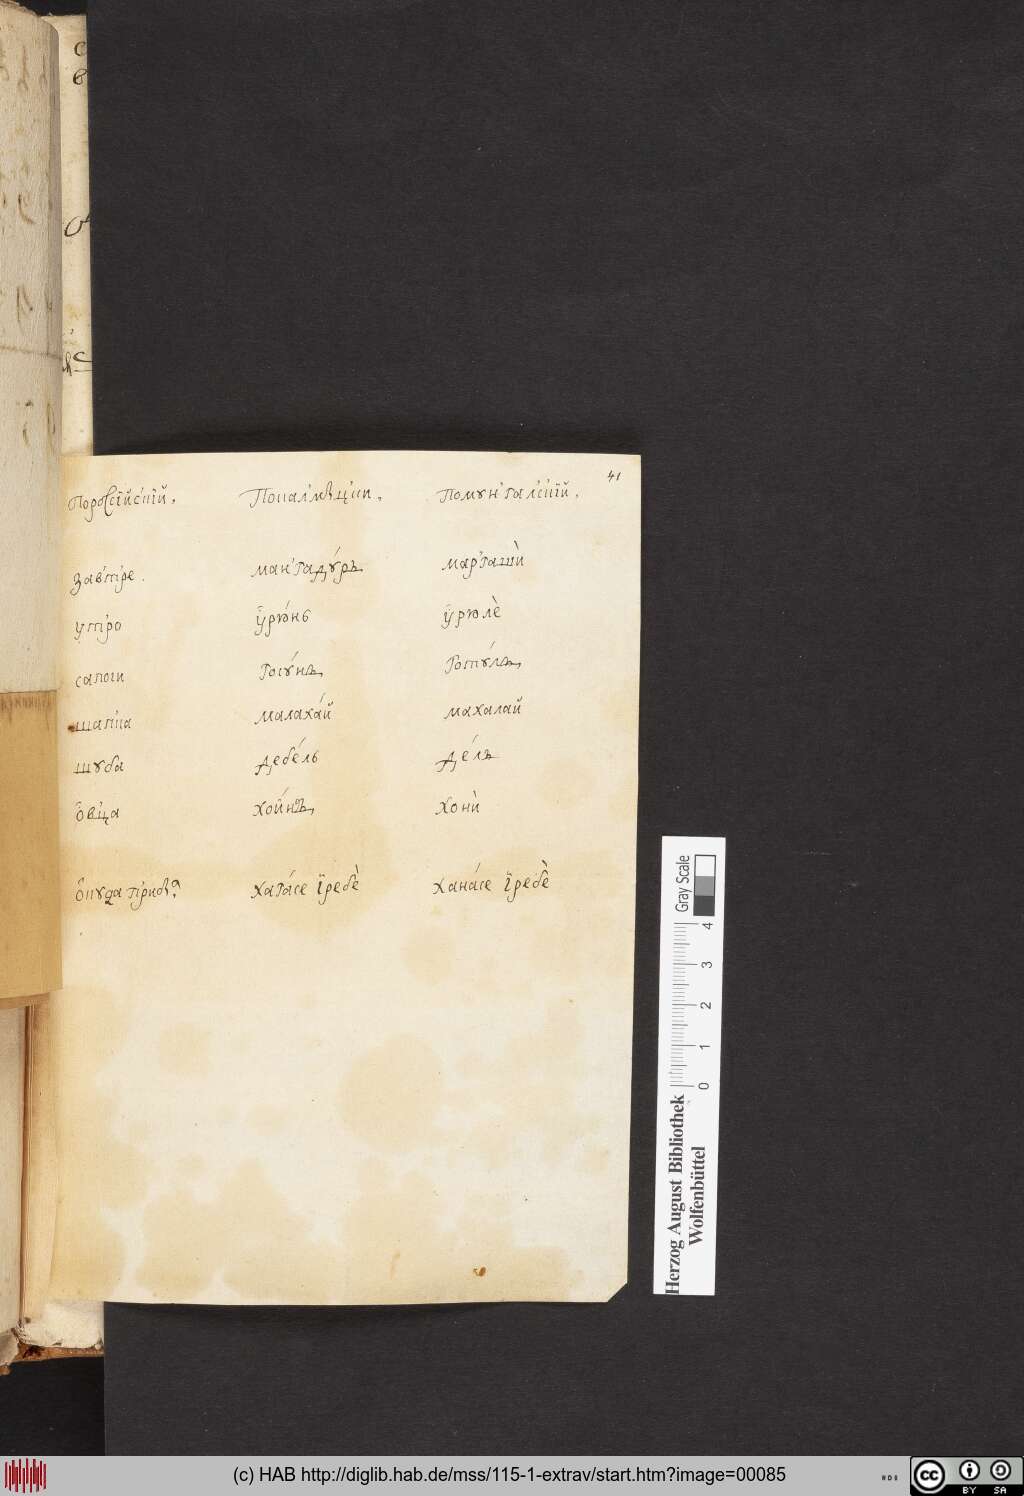 41
Пороссїйскїй. Покалмѣцки. Помунгалскїй.
завтре. мангадуръ маргаши
утро ӱрюнь ӱрюлѐ
сапоги госунъ готулъ
шапка малахай махалай
шуба дебель делъ
овца хойнъ хони
ѿкуда прибѣ? хагасе їребѐ ханасе їребѐ
Gray Scale
0 1 2 3 4
Herzog August Bibliothek
Wolfenbüttel
(c) HAB http://diglib.hab.de/mss/115-1-extrav/start.htm?image=00085
cc BY SA